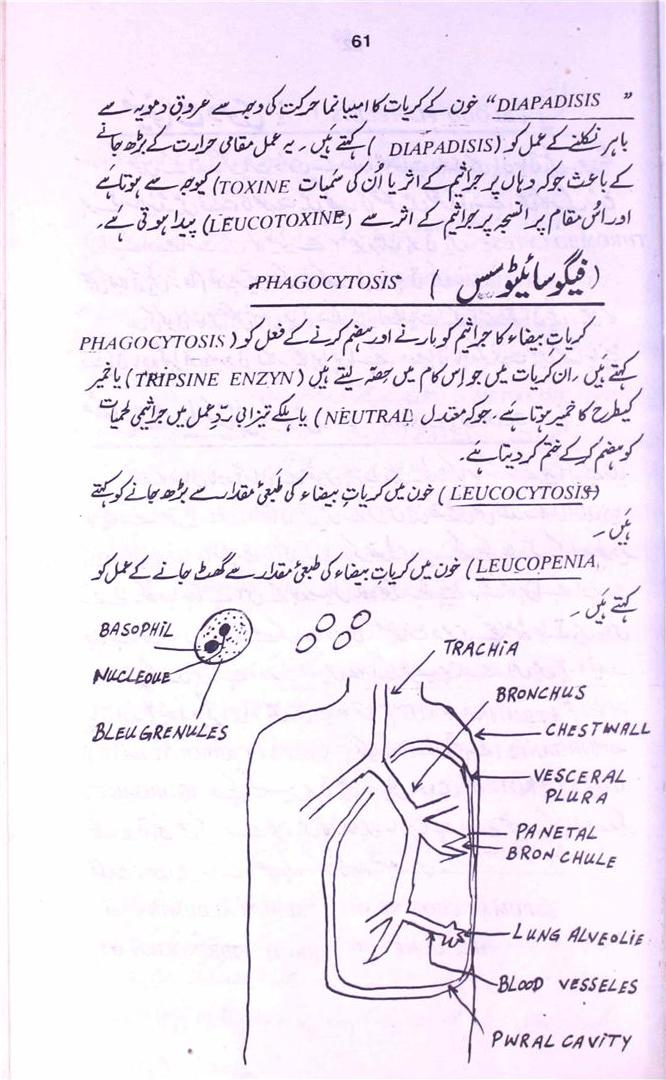 61
"DIAPADISIS" خون کے کریات کا امیبا نما حرکت کی وجہ سے عروق دمویہ سے
باہر نکلنے کے عمل کو (DIAPADISIS) کہتے ہیں۔ یہ عمل مقامی حرارت کے بڑھ جانے
کے باعث جو کہ وہاں پر جراثیم کے اثر یا اُن کی سمیات (TOXINE) کیوجہ سے ہوتا ہے
اور اُس مقام پر انسجہ پر جراثیم کے اثر سے (LEUCOTOXINE) پیدا ہوتی ہے۔
(فیگوسائیٹوسس) "PHAGOCYTOSIS"
کریاتِ بیضاء کا جراثیم کو مارنے اور ہضم کرنے کے فعل کو (PHAGOCYTOSIS
کہتے ہیں۔ ان کریات میں جو اِس کام میں حِصّہ لیتے ہیں (TRIPSINE ENZYN) یا خمیر
کیطرح کا خمیر ہوتا ہے۔ جو کہ معتدل (NEUTRAL) یا ہلکے تیزابی ردِّ عمل میں جراثیمی لحمیات
کو ہضم کر کے ختم کر دیتا ہے۔
(LEUCOCYTOSIS) خون میں کریاتِ بیضاء کی طبعی مقدار سے بڑھ جانے کو کہتے
ہیں۔
(LEUCOPENIA) خون میں کریاتِ بیضاء کی طبعی مقدار سے گھٹ جانے کے عمل کو
کہتے ہیں۔
BASOPHIL
NUCLEOUE
BLEU GRENULES
TRACHIA
BRONCHUS
CHESTWALL
VESCERAL
PLURA
PANETAL
BRONCHULE
LUNG ALVEOLIE
BLOOD VESSELES
PWRAL CAVITY